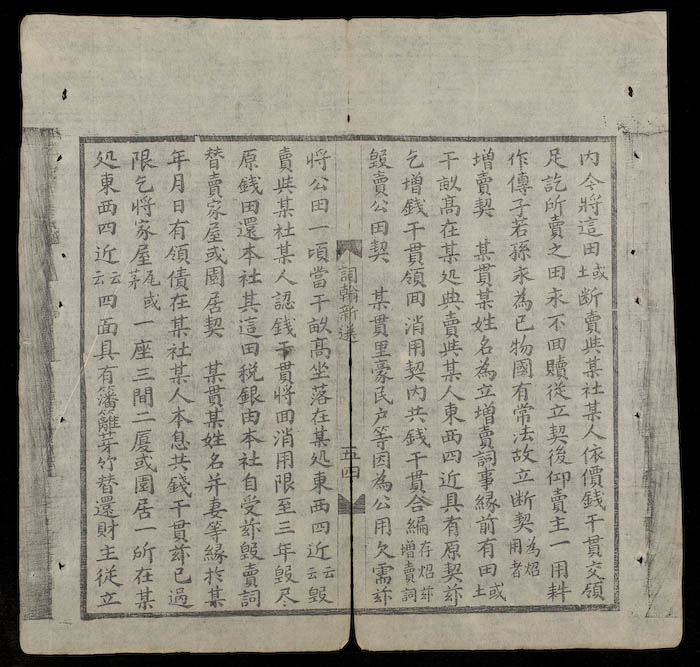 内今將這田或土断賣與某社某人依價錢干貫交領
足訖所賣之田永不回贖從立契後仰賣主一用耕
作傳子若孫永為己物國有常法故立断契為炤用者
增賣契　某貫某姓名為立增賣詞事緣前有田或土
干畝高在某処典賣與某人東西四近具有原契茲
乞增錢干貫領囬消用契内共錢干貫合編存炤茲增賣詞
毀賣公田契　某貫里豪民户等因為公用欠需茲
詞翰新選　五四
將公田一頃當干畝高坐落在某処東西四近云云毀
賣與某社某人認錢干貫將囬消用限至三年毀尽
原錢田還本社其這田税銀由本社自受茲毀賣詞
替賣家屋或園居契　某貫某姓名并妻等緣於某
年月日有領債在某社某人本息共錢干貫茲已過
限乞將家屋瓦或茅一座三間二厦或園居一所在某
処東西四近云云四面具有籓籬芽竹替還財主從立